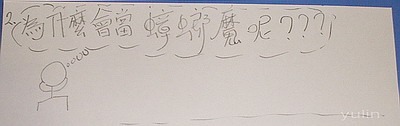 2.為什麼會當蟑螂魔呢???
yulin